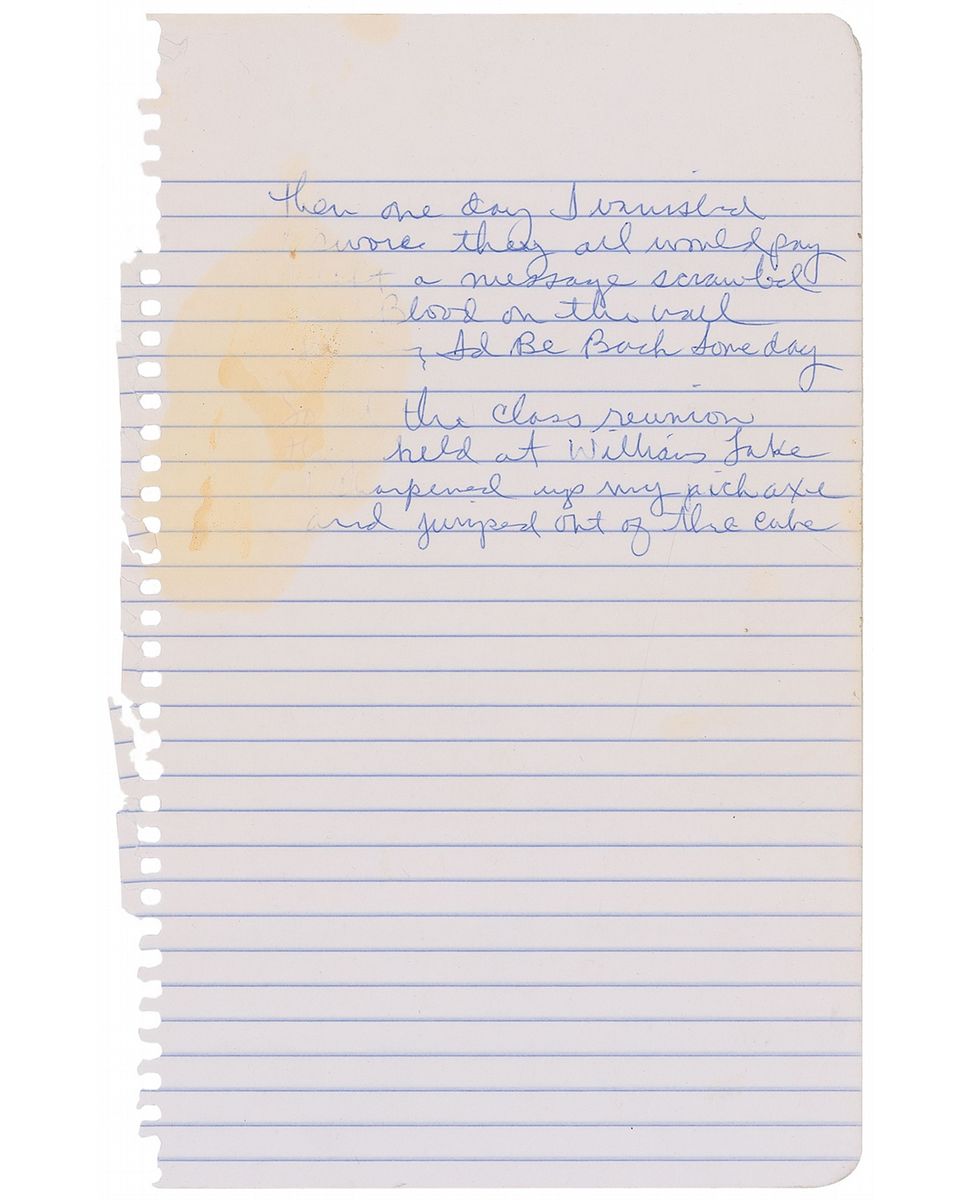 then one day I vanished
swore they all would pay
a message scrawled
Blood on the wall
I'd Be Back Some day
the class reunion
held at Williams Lake
arpened up my pick axe
and jumped out of the cake